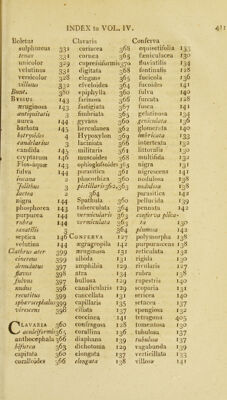 INDEX to VOL. IV. 411
Boletus
sulphureus 331
tenax 331
unicolor 329
velutinus 332
versicolor 328
villosus 332
Buxb. 380
Byssus 143
aeruginosa 143
antiquitatis 3
aurea 144
barbata 145
botryoides 4
candelaris 3
candida 145
cryptarum 146
Flos-aquæ 143
fulva 144
incana 2
Jolithus 2
lactea 3
nigra 144
phosphorea 143
purpurea 144
rubra 144
saxatilis
septica 146
velutina 144
Clathrus ater 399
cinereus 399
denudatus 397
flavus 398
fulvus 397
nudus 396
recutitus 399
sphærocephalus 399
virescens 398
Clavaria 360
aculeiformis 365
anthocephala 366
bifurca 363
capitata 360
coralloides 366
Clavaria
coriacea 368
cornea 365
cupressiformis 370
digitata 368
elegans 365
elveloides 364
epiphylla 360
farinosa 366
fastigiata 367
fimbriata 365
gyrans 360
herculanea 362
Hypoxylon 369
laciniata 366
militaris 361
muscoides 368
ophioglossoides 365
parasitica 361
phacorhiza 360
pistillaris 362, 363
364
Spathula 360
tuberculata 364
vermicularis 363
vermiculata 363
364
Conferva 127
aegagropila 142
æruginosa 131
albida 131
amphibia 129
atra 134
bullosa 129
canalicularis 129
cancellata 131
capillaris 135
ciliata 137
coccinea 141
confragosa 128
corallina 136
diaphana 139
dichotoma 129
elongata 137
elongata 138
Conferva
equisetifolia 133
fœniculacea 130
fluviatilis 134
fontinalis 128
fucicola 136
fucoides 141
fulva 140
furcata 128
fusca 141
gelatinosa 134
geniculata 136
glomerata 140
imbricata 132
intertexta 132
littoralis 130
multifida 132
nigra 131
nigrescens 141
nodulosa 138
nodulosa 138
parasitica 142
pellucida 139
pennata 142
conferva plicata 130
plumosa 142
polymorpha 138
purpurascens 138
reticulata 132
rigida 130
rivularis 127
rubra 138
rupestris 140
scoparia 131
sericea 140
setacea 137
spongiosa 132
tetragona 405
tomentosa 130
tubulosa 137
tubulosa 137
vagabunda 139
verticillata 133
villosa 141